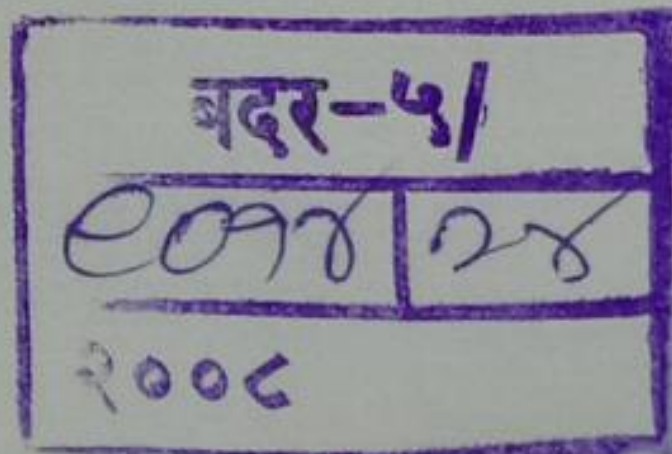 बदर-५/
९०१४ २४
२००८